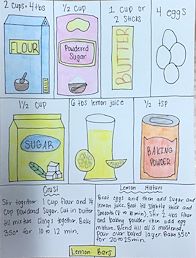 2 cups + 4 tbs
1/2 cup
1 cup or
2 sticks
4 eggs
FLOUR
Powdered
Sugar
BUTTER
1 1/2 cup
6 tbs lemon juice
1/2 tsp
SUGAR
BAKING
POWDER
Crust
Stir together 1 cup flour and 1/2
cup powdered sugar. Cut in butter
till mix clings together. Bake
350° for 10-12 min.
Lemon
Beat eggs and then add sugar and
lemon juice. Beat till slightly thick and
smooth (8 to 10 min). Stir 2 tbs flour
and baking powder then add egg
mixture. Blend till all is moistened.
Pour over baked layer. Bake 350°
for 20 to 25 min.
Lemon Bars